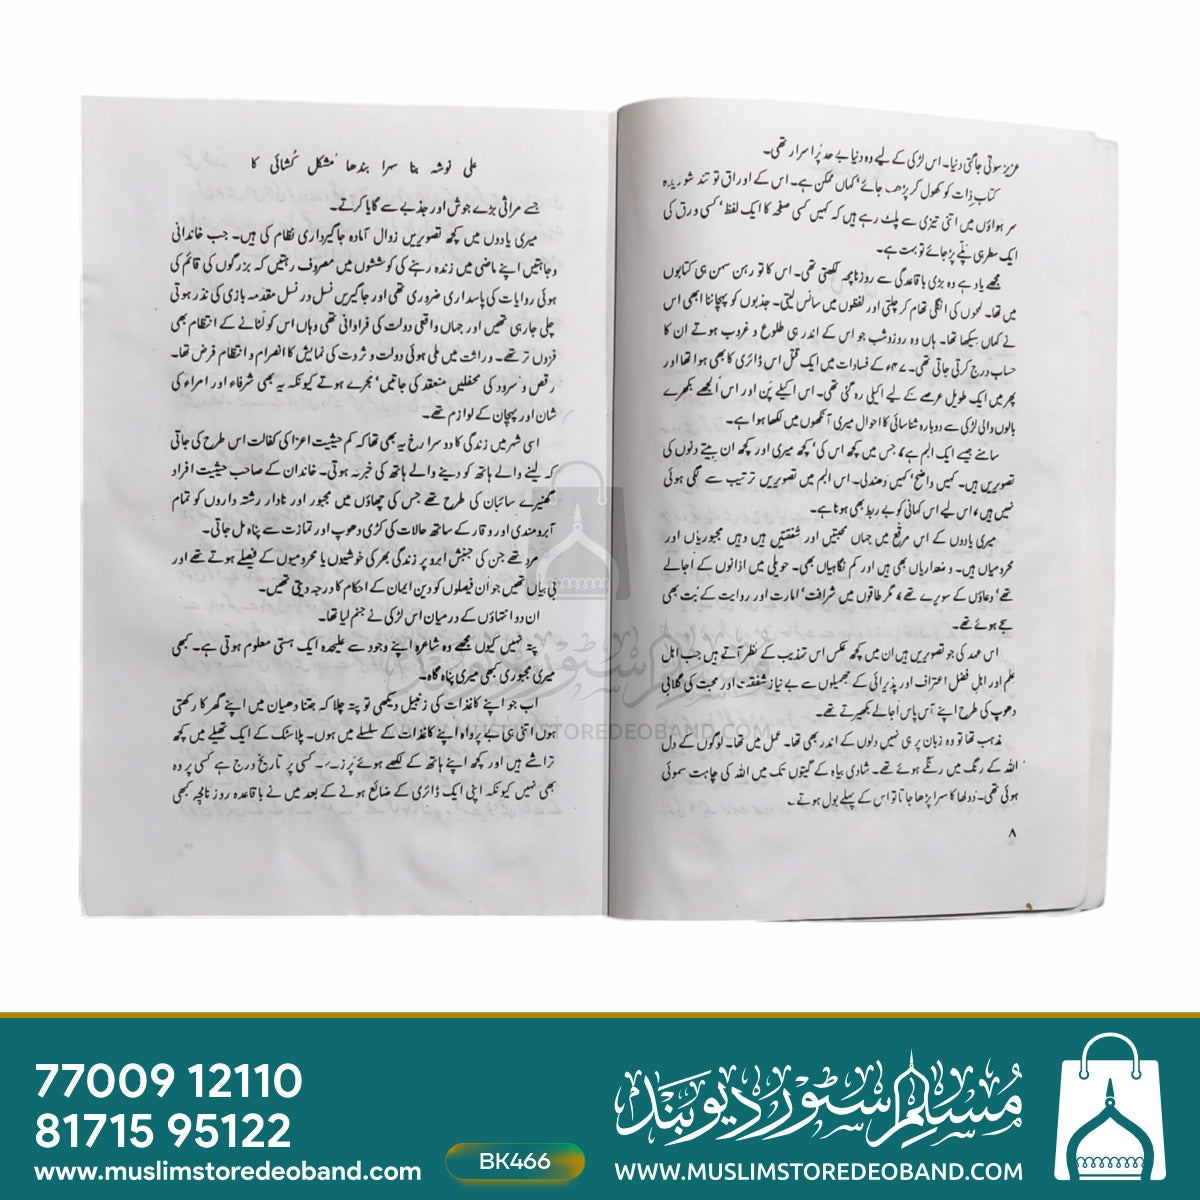 عزیز سوتی جاگتی دنیا۔ اس لڑکی کے لیے وہ دنیا بے حد پُراسرار تھی۔
کتابِ ذات کو کھول کر پڑھ جائے‘ کہاں ممکن ہے۔ اس کے اوراق تو تند شوریدہ
سر ہواؤں میں اتنی تیزی سے پلٹ رہے ہیں کہ کہیں کسی صفحہ کا ایک لفظ‘ کسی ورق کی
ایک سطر ہی پلّے پڑ جائے تو بہت ہے۔
مجھے یاد ہے وہ بڑی باقاعدگی سے روزنامچہ لکھتی تھی۔ اس کا تو رہن سہن ہی کتابوں
میں تھا۔ لمحوں کی انگلی تھام کر چلتی اور لفظوں میں سانس لیتی۔ جذبوں کو پہچاننا ابھی اس
نے کہاں سیکھا تھا۔ ہاں وہ روز و شب جو اس کے اندر ہی طلوع و غروب ہوتے ان کا
حساب درج کرتی جاتی تھی۔ ۴۷ء کے فسادات میں ایک قتل اس ڈائری کا بھی ہوا تھا اور
پھر میں ایک طویل عرصے کے لیے اکیلی رہ گئی تھی۔ اس اکیلے پَن اور اس اُلجھے بکھرے
بالوں والی لڑکی سے دوبارہ شناسائی کا احوال میری آنکھوں میں لکھا ہوا ہے۔
سامنے جیسے ایک البم ہے، جس میں کچھ اس کی‘ کچھ میری اور کچھ ان بیتے دنوں کی
تصویریں ہیں۔ کہیں واضح‘ کہیں دھندلی۔ اس البم میں تصویریں ترتیب سے لگی ہوئی
نہیں ہیں، اس لیے اس کہانی کو بے ربط بھی ہونا ہے۔
میری یادوں کے اس مرقع میں جہاں محبتیں اور شفقتیں ہیں وہیں مجبوریاں اور
محرومیاں ہیں۔ وضعداریاں بھی ہیں اور کم نگاہیاں بھی۔ حویلی میں اذانوں کے اُجالے
تھے‘ دعاؤں کے سویرے تھے، مگر طاقوں میں شرافت‘ امارت اور روایت کے بُت بھی
سجے ہوئے تھے۔
اس عہد کی جو تصویریں ہیں ان میں کچھ عکس اس تہذیب کے نظر آتے ہیں جب اہلِ
علم اور اہلِ فضل اعتراف اور پذیرائی کے جھمیلوں سے بے نیاز شفقت اور محبت کی گلابی
دھوپ کی طرح اپنے آس پاس اُجالے بکھیرتے تھے۔
مذہب تھا تو وہ زبان پر ہی نہیں دلوں کے اندر بھی تھا۔ عمل میں تھا۔ لوگوں کے دل
اللہ کے رنگ میں رنگے ہوئے تھے۔ شادی بیاہ کے گیتوں تک میں اللہ کی چاہت سموئی
ہوئی تھی۔ دولھا کا سہرا پڑھا جاتا تو اس کے پہلے بول ہوتے۔
۸
علی نوشہ بنا سہرا بندھا مشکل کُشائی کا
جسے مراثی بڑے جوش اور جذبے سے گایا کرتے۔
میری یادوں میں کچھ تصویریں زوال آمادہ جاگیرداری نظام کی ہیں۔ جب خاندانی
وجاہتیں اپنے ماضی میں زندہ رہنے کی کوششوں میں مصروف رہتیں کہ بزرگوں کی قائم کی
ہوئی روایات کی پاسداری ضروری تھی اور جاگیریں نسل در نسل مقدمہ بازی کی نذر ہوتی
چلی جا رہی تھیں اور جہاں واقعی دولت کی فراوانی تھی وہاں اس کو لُٹانے کے انتظام بھی
فزوں تر تھے۔ وراثت میں ملی ہوئی دولت و ثروت کی نمائش کا انصرام و انتظام فرض تھا۔
رقص و سرود کی محفلیں منعقد کی جاتیں‘ مُجرے ہوتے کیونکہ یہ بھی شرفاء اور امراء کی
شان اور پہچان کے لوازم تھے۔
اسی شہر میں زندگی کا دوسرا رخ یہ بھی تھا کہ کم حیثیت اعزا کی کفالت اس طرح کی جاتی
کہ لینے والے ہاتھ کو دینے والے ہاتھ کی خبر نہ ہوتی۔ خاندان کے صاحبِ حیثیت افراد
گھنیرے سائبان کی طرح تھے جس کی چھاؤں میں مجبور اور نادار رشتہ داروں کو تمام
آبرومندی اور وقار کے ساتھ حالات کی کڑی دھوپ اور تمازت سے پناہ مل جاتی۔
مرد تھے جن کی جنبشِ ابرو پر زندگی بھر کی خوشیوں یا محرومیوں کے فیصلے ہوتے تھے اور
بی بیاں تھیں جو اُن فیصلوں کو دین ایمان کے احکام کا درجہ دیتی تھیں۔
ان دو انتہاؤں کے درمیان اس لڑکی نے جنم لیا تھا۔
پتہ نہیں کیوں مجھے وہ شاعرہ اپنے وجود سے علیحدہ ایک ہستی معلوم ہوتی ہے۔ کبھی
میری مجبوری کبھی میری پناہ گاہ۔
اب جو اپنے کاغذات کی زنبیل دیکھی تو پتہ چلا کہ جتنا دھیان میں اپنے گھر کا رکھتی
ہوں اتنی ہی بے پرواہ اپنے کاغذات کے سلسلے میں ہوں۔ پلاسٹک کے ایک تھیلے میں کچھ
تراشے ہیں اور کچھ اپنے ہاتھ کے لکھے ہوئے پُرزے۔ کسی پر تاریخ درج ہے کسی پر وہ
بھی نہیں کیونکہ اپنی ایک ڈائری کے ضائع ہونے کے بعد میں نے باقاعدہ روزنامچہ کبھی
مسلم سٹور دیوبند
WWW.MUSLIMSTOREDEOBAND.COM
77009 12110
81715 95122
www.muslimstoredeoband.com
BK466
مسلم سٹور دیوبند
WWW.MUSLIMSTOREDEOBAND.COM